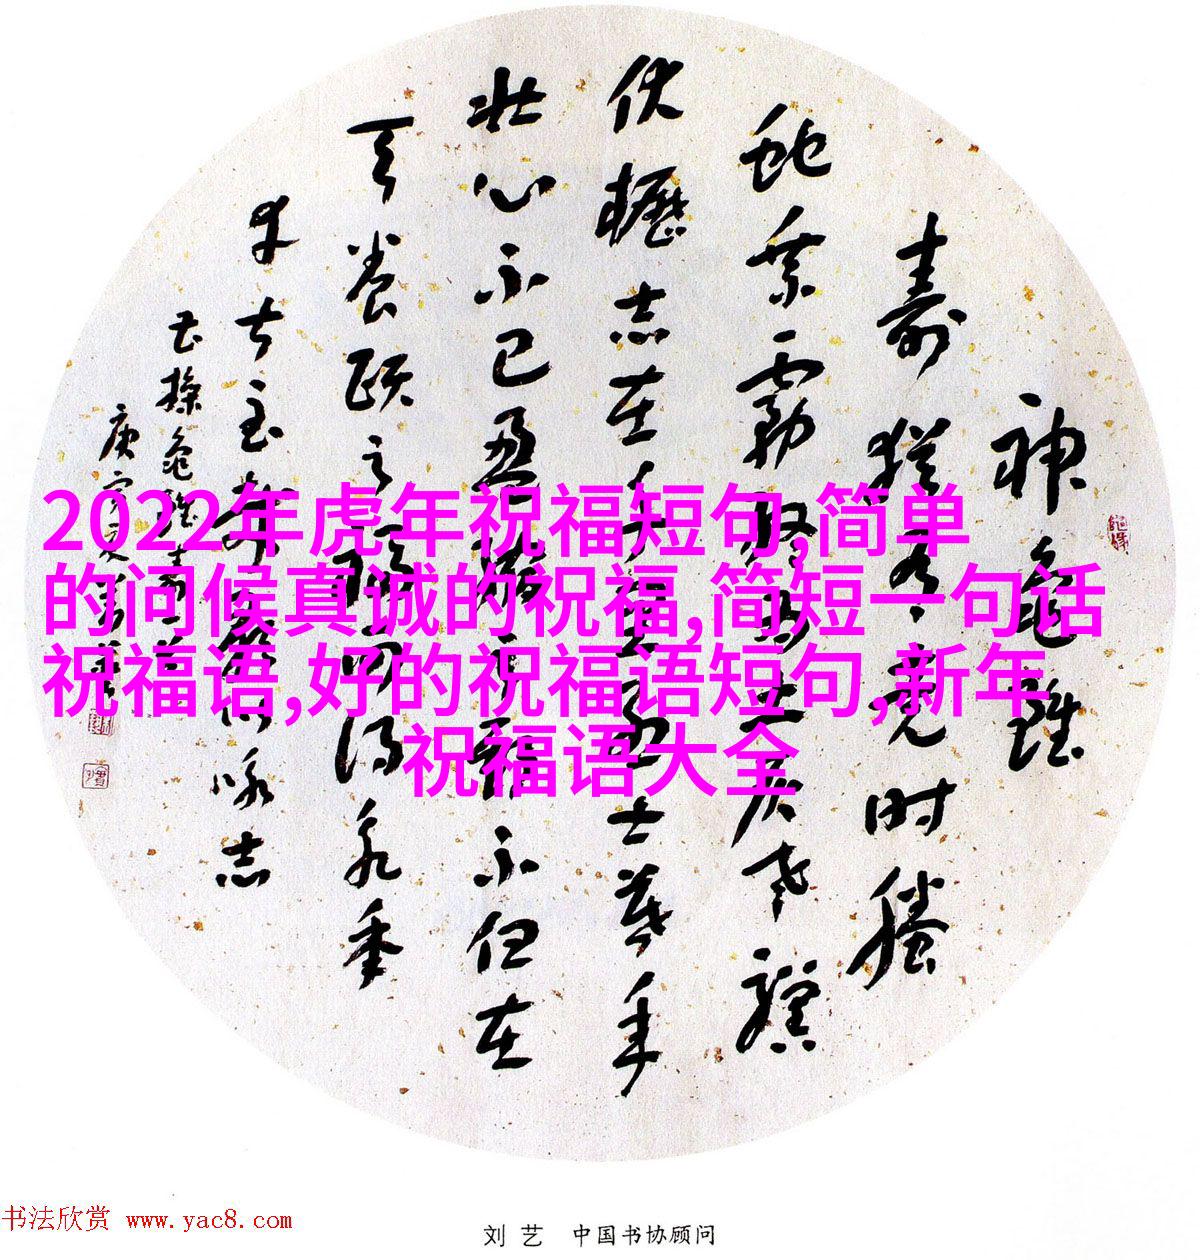 神龜雖
壽猶有竟時騰
蛇乘霧終為土灰老驥
伏櫪志在千里烈士暮年
壯心不已盈縮之期不但在
天養頤之福可得永年
幸甚至哉歌以詠志
曹操龜雖壽
庚寅夏
2022年虎年祝福短句,简单
的问候真诚的祝福,简短一句话
祝福语,好的祝福语短句,新年
祝福语大全
书法欣赏 www.yac8.com
刘艺 中国书协顾问